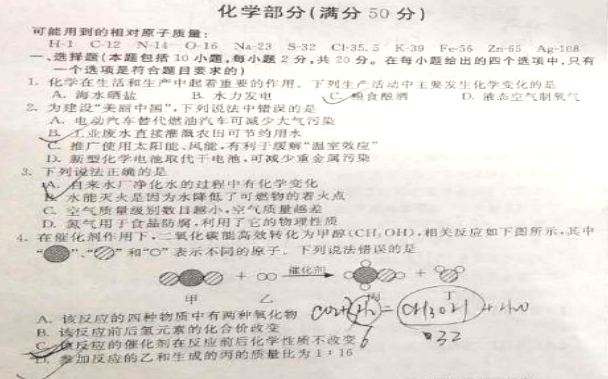 化学部分(满分50分)
可能用到的相对原子质量:
H-1 C-12 N-14 O-16 Na-23 S-32 Cl-35.5 K-39 Fe-56 Zn-65 Ag-108
一、选择题(本题包括10小题,每小题2分,共20分。在每小题给出的四个选项中,只有
一个选项是符合题目要求的)
1. 化学在生活和生产中起着重要的作用。下列生产活动中主要发生化学变化的是
A. 海水晒盐 B. 水力发电 C. 粮食酿酒 D. 液态空气制氧气
2. 为建设“美丽中国”,下列说法中错误的是
A. 电动汽车替代燃油汽车可减少大气污染
B. 工业废水直接灌溉农田可节约用水
C. 推广使用太阳能、风能,有利于缓解“温室效应”
D. 新型化学电池取代干电池,可减少重金属污染
3. 下列说法正确的是
A. 自来水厂净化水的过程中有化学变化
B. 水能灭火是因为水降低了可燃物的着火点
C. 空气质量级别数目越小,空气质量越差
D. 氮气用于食品防腐,利用了它的物理性质
4. 在催化剂作用下,二氧化碳能高效转化为甲醇(CH₃OH),相关反应如下图所示,其中
“ ”、“ ”和“○”表示不同的原子。下列说法错误的是
+ 催化剂 +
甲 乙 丙 丁
CO2+H2 = CH3OH + H2O
A. 该反应的四种物质中有两种氧化物
B. 该反应前后氢元素的化合价改变
6 32
C. 该反应的催化剂在反应前后化学性质不改变
D. 参加反应的乙和生成的丙的质量比为1:16